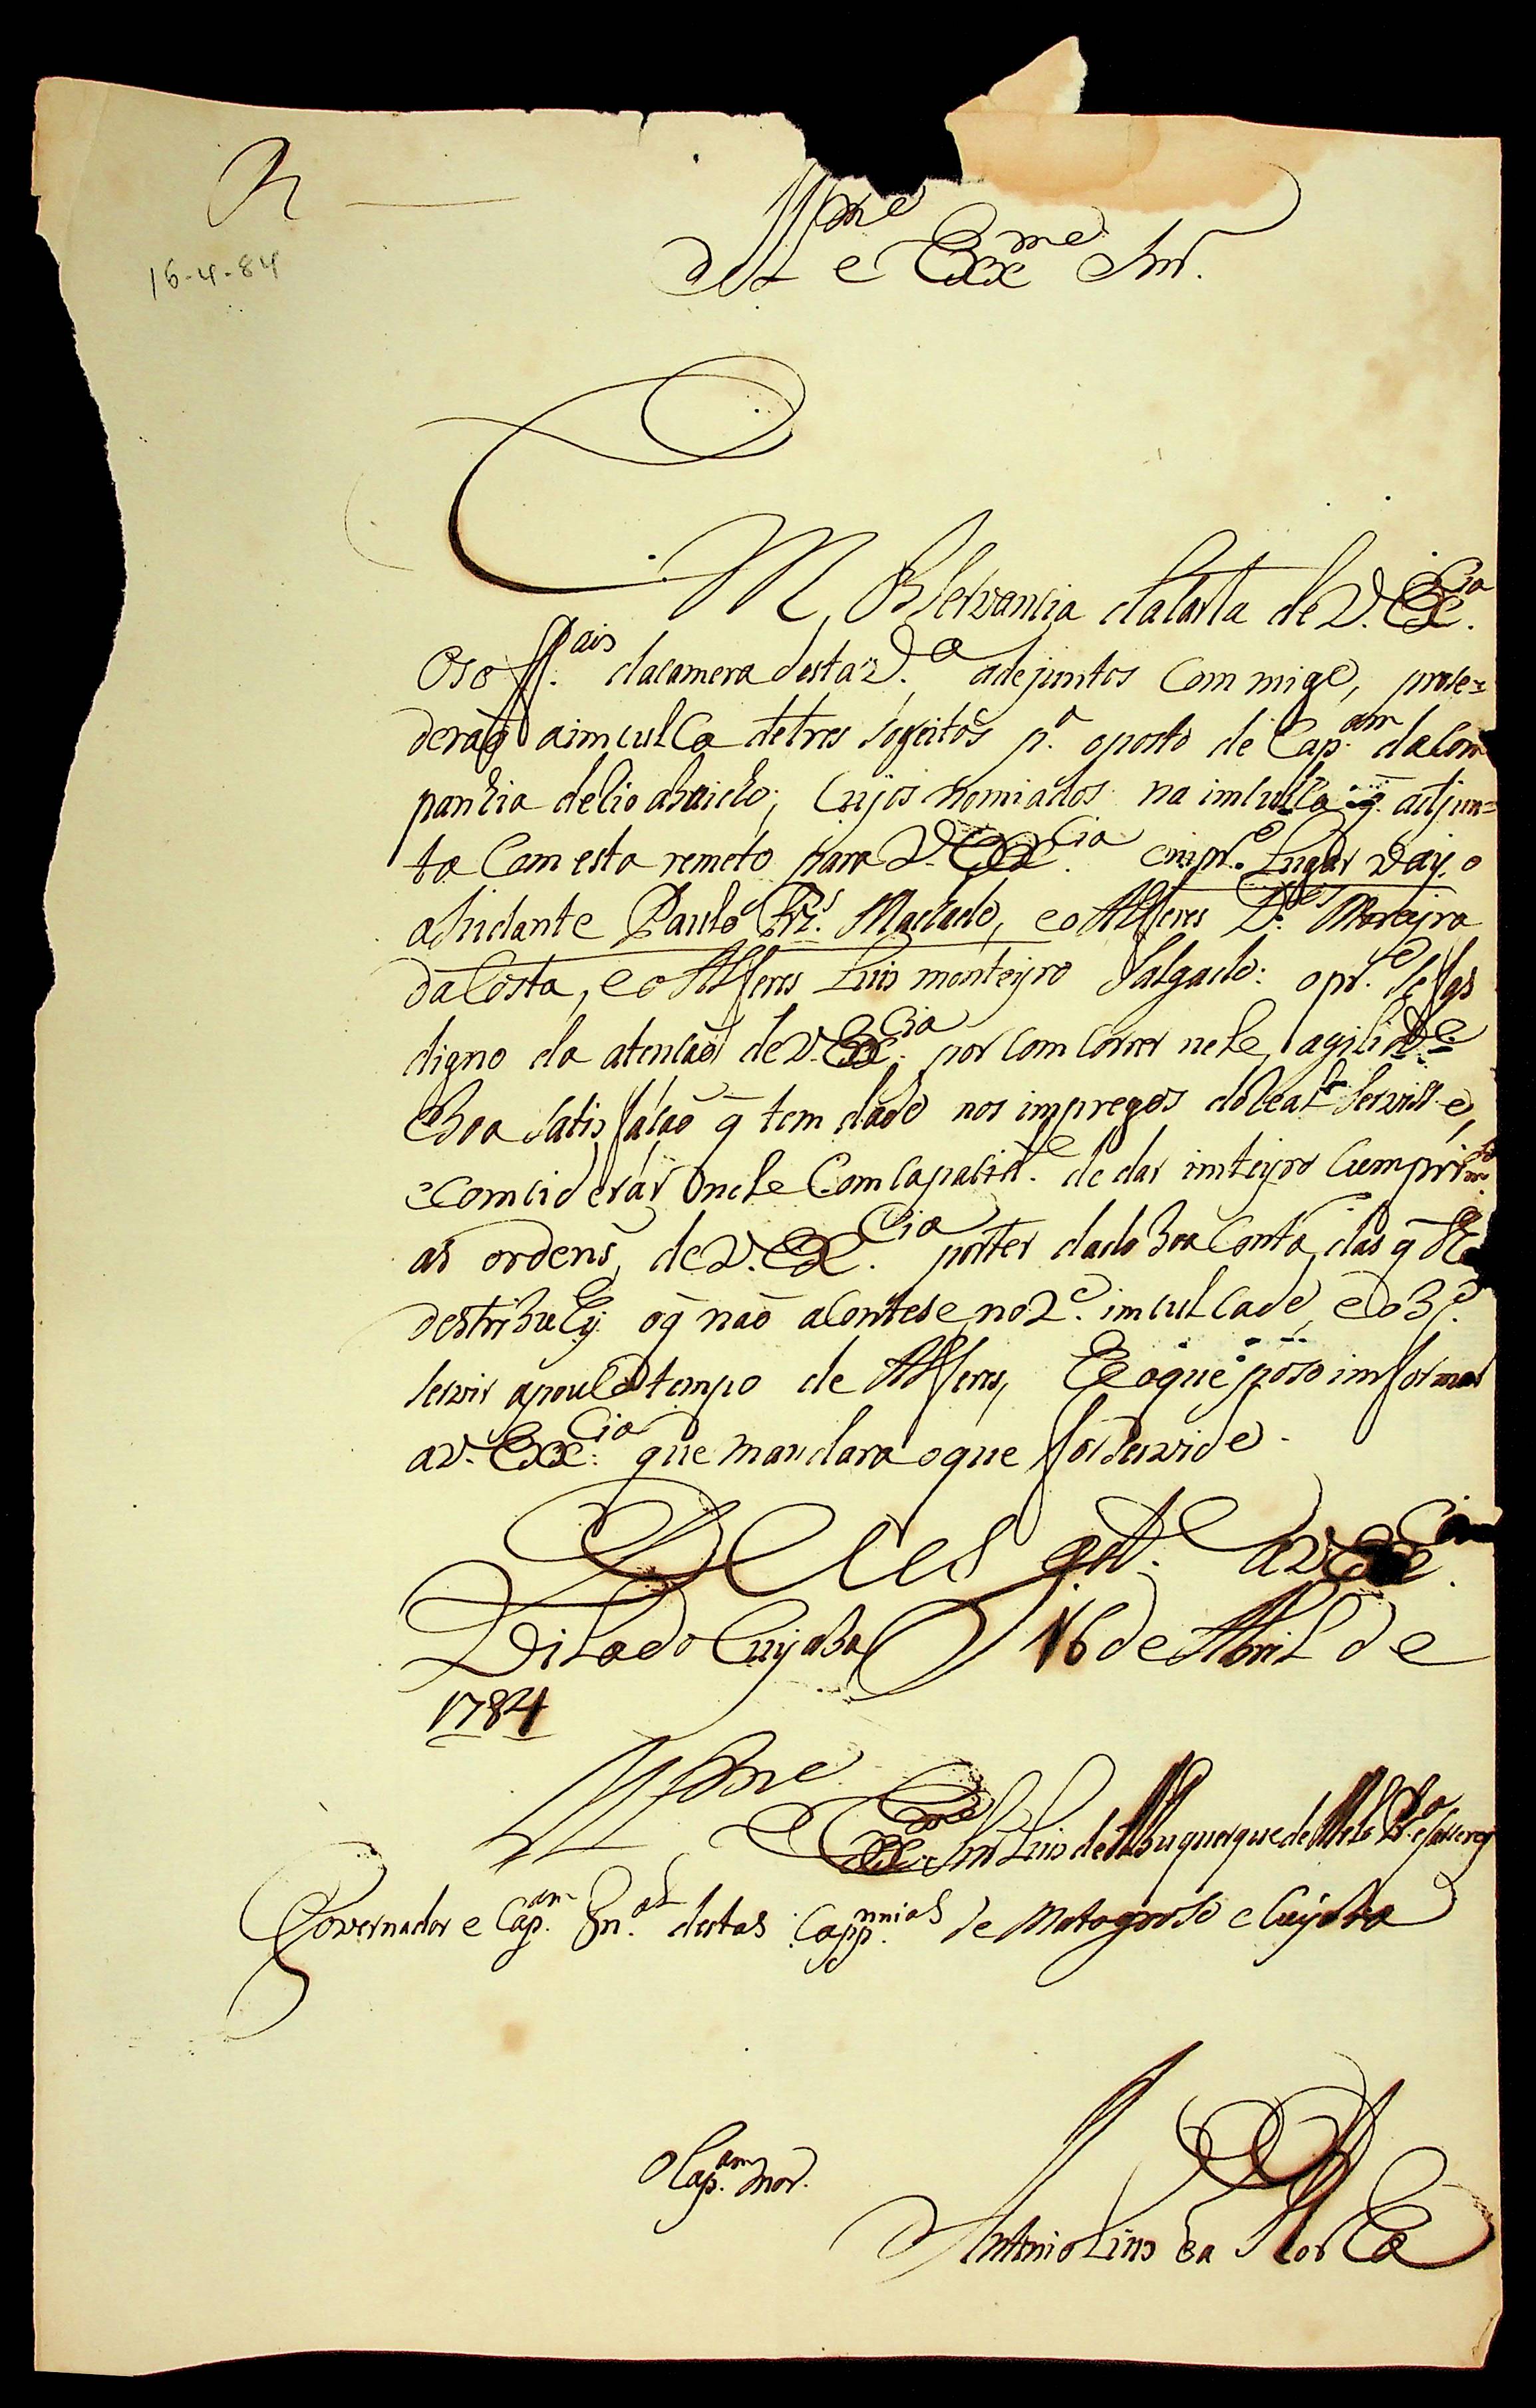 R
16-4-84
Ill.mo e Ex.mo Snr.
EM Observancia dacarta de V. Ex.cia
Os off.ais dacamera desta V.a adejuntos Com migo, prose=
deraõ aimculca detres sogeitos p.a oposto de Cap.am daCom
panhia delio abaicho; Cujos nomiados na imculca q. adjun=
ta Com esta remeto para V. Ex.cia em pr.o Lugar vay o
ahudante Paulo Frz.s Machado, eo Alferes D.os Moreyra
daCosta, eo Alferes Luis monteyro Salgado: o pr.o se fas
digno da atencaõ de V. Ex.cia por comcorrer nele agilid.e
eboa satisfacaõ q̃ tem dado nos impregos doReal Servisso,
ecomciderar Onele Com Capacid.e de dar imteyro Cumprim.to
as ordens, de V. Ex.cia porter dado boa Conta, das q̃ lhe
destribuhy oq̃ naõ acontese no 2.o imculcado, eo 3.o
servir apouco tempo de Alferes, He oque poso imformar
aV. Ex.cia que mandara oque for servido.
Deus gd.e aV. Ex.cia
Vila do Cuyaba 16 de Abril de
1784
Ill.mo
e Ex.mo Snr Luis de Albuquerque de Mello Pr.a eCaceres
Governador e Cap.am Gn.al destas Capp.nnias de Matogroso e Cuyaba
O Cap.am mor.
Antonio Luis da Rocha